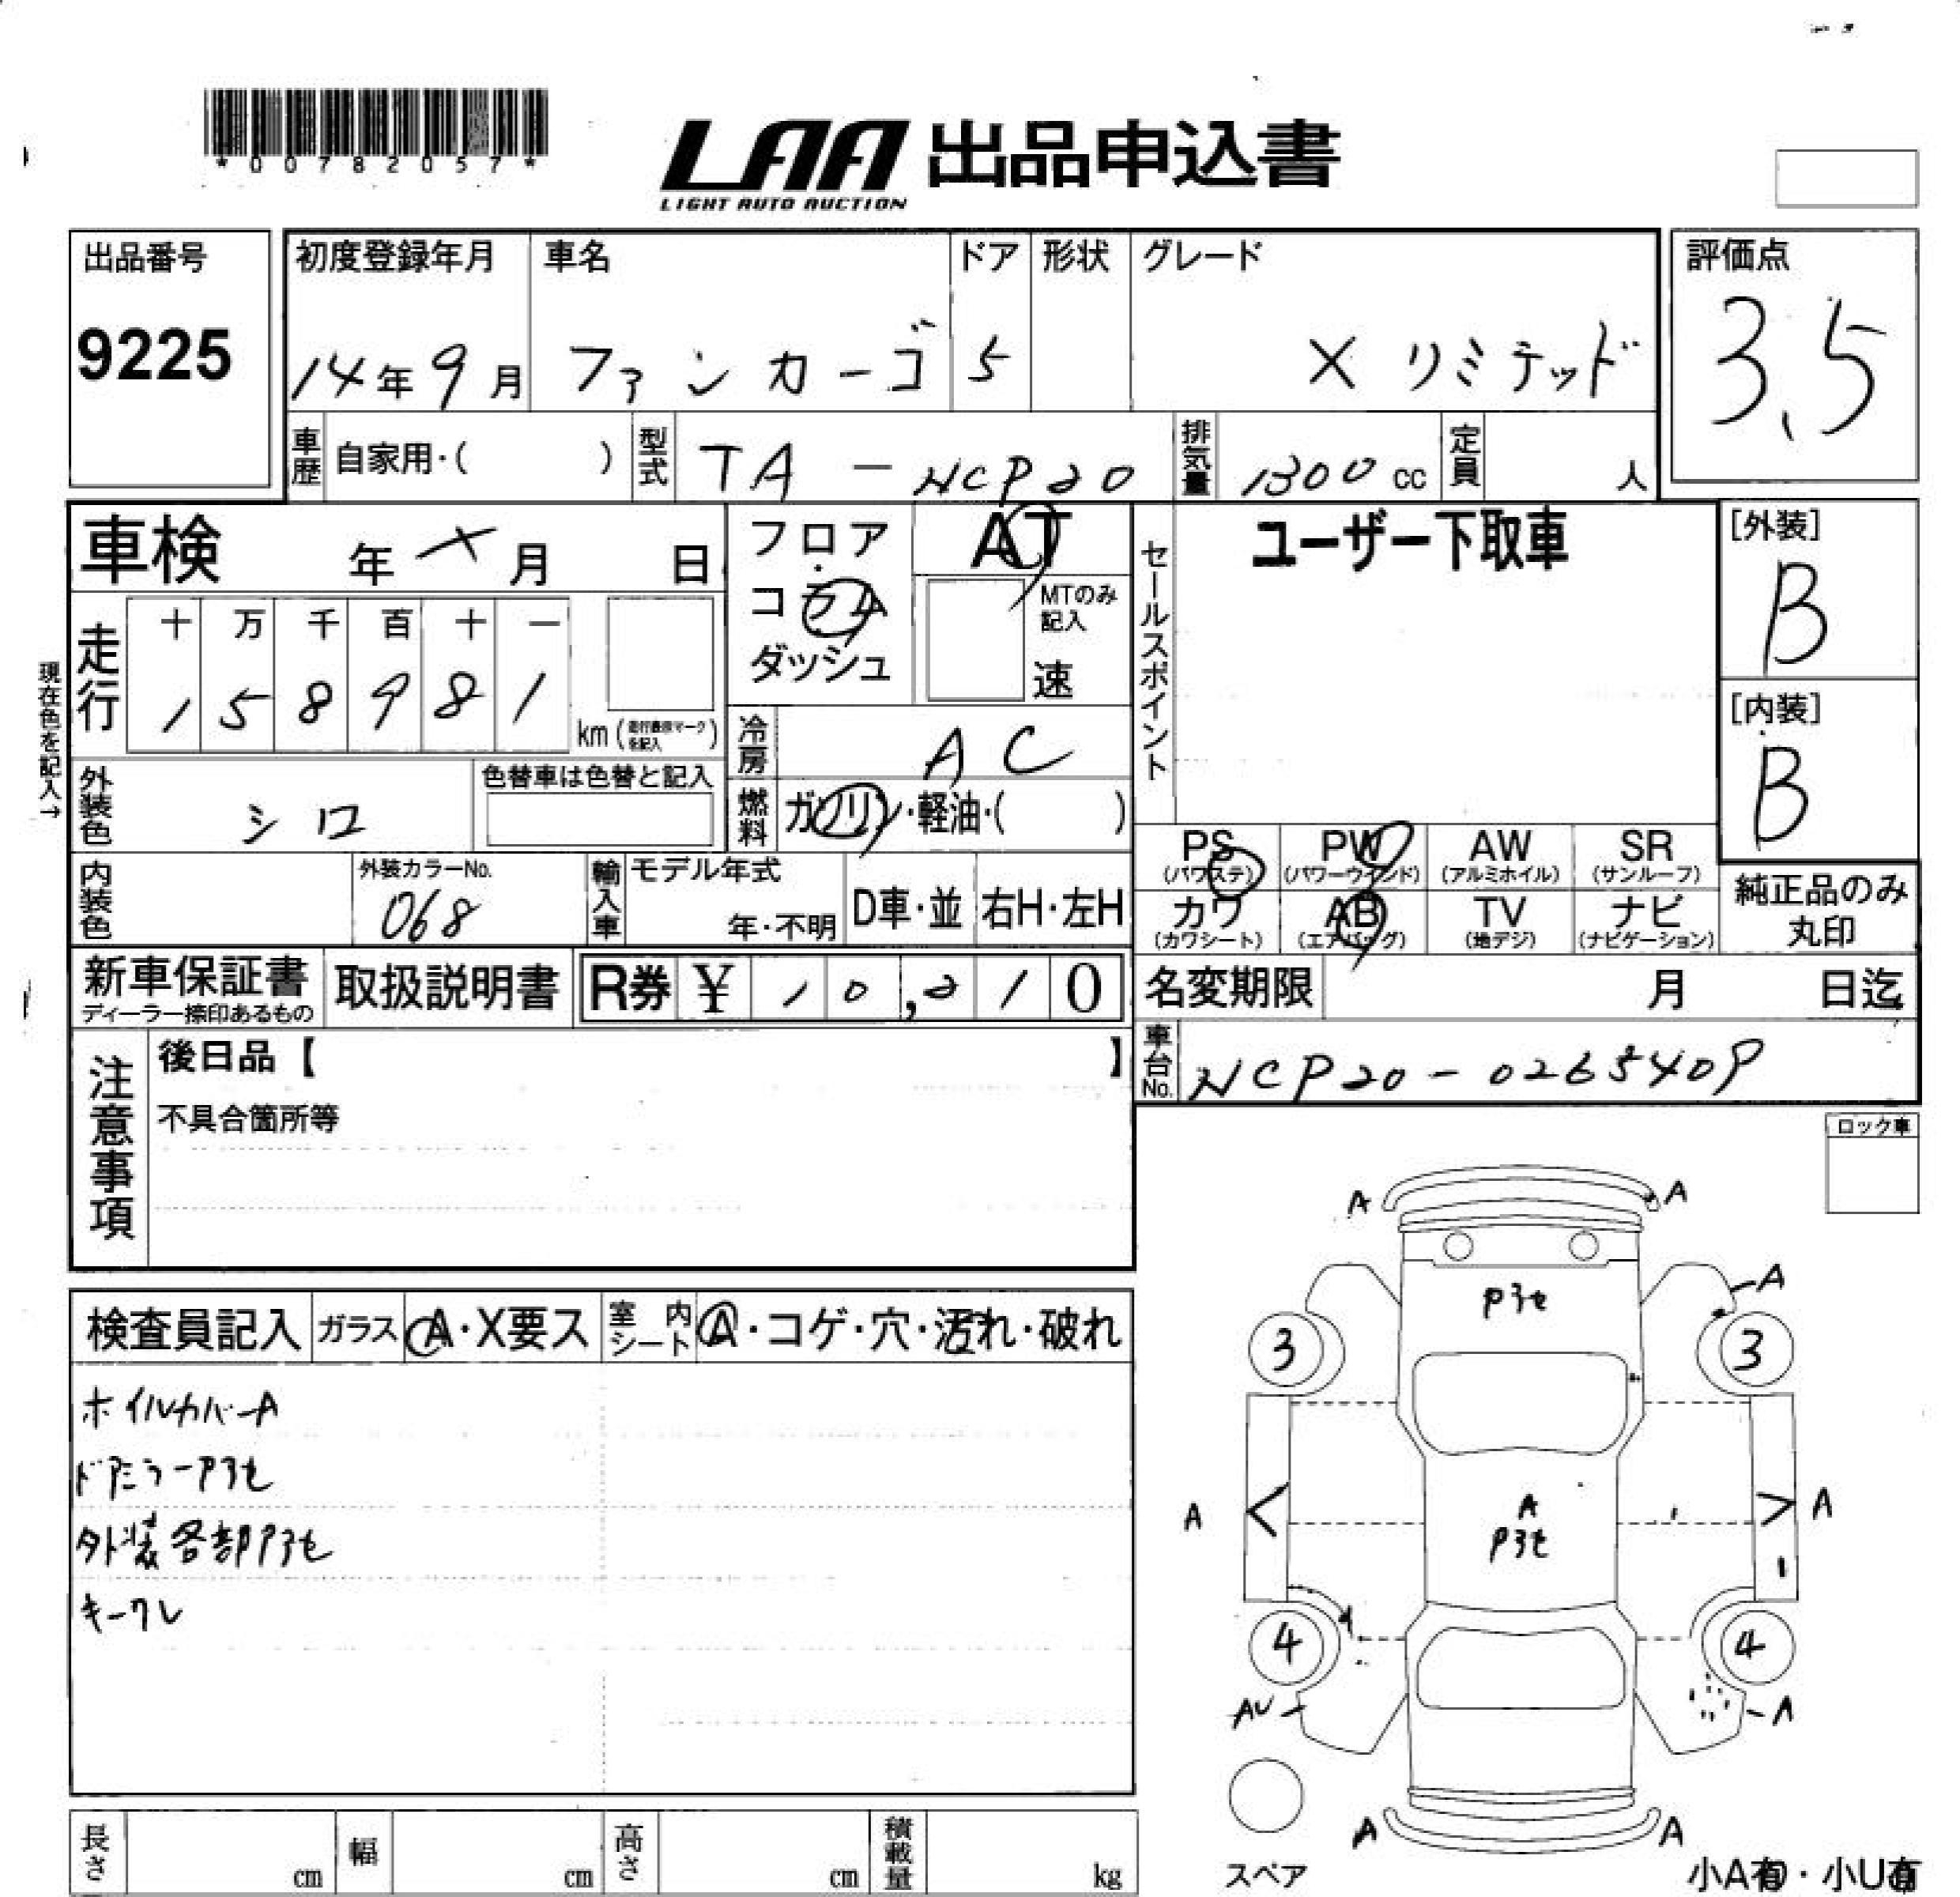 *00782057*
LAA 出品申込書
LIGHT AUTO AUCTION
出品番号
9225
初度登録年月 車名 ドア 形状 グレード
14年9月 ファンカーゴ 5 X リミテッド
評価点
3.5
車歴 自家用・( ) 型式 TA-NCP20 排気量 1300cc 定員 人
車検 年 X 月 日
フロア・コラム
ダッシュ
AT
MTのみ記入
速
セールスポイント
ユーザー下取車
[外装]
B
[内装]
B
現在色を記入→
走行 十 万 千 百 十 一
1 5 8 9 8 1
km
冷房 AC
外装色 シロ
色替車は色替と記入
燃料 ガソリン・軽油・( )
内装色
外装カラーNo.
068
輸入車 モデル年式
年・不明 D車・並 右H・左H
PS (パワステ) PW (パワーウインド) AW (アルミホイル) SR (サンルーフ)
カワ (カワシート) AB (エアバッグ) TV (地デジ) ナビ (ナビゲーション)
純正品のみ
丸印
新車保証書
ディーラー捺印あるもの
取扱説明書 R券 ¥ 10,210
名変期限 月 日迄
車台No. NCP20-0265409
注意事項
後日品【 】
不具合箇所等
ロック車
検査員記入 ガラス A・X要ス 室内シート A・コゲ・穴・汚れ・破れ
ホイルカバーA
ドアミラーアセ
外装各部アセ
キーワレ
A A
アセ
A
3 3
A A
A
アセ
4 4
AU A
A A
スペア
小A有・小U有
長さ cm 幅 cm 高さ cm 積載量 kg